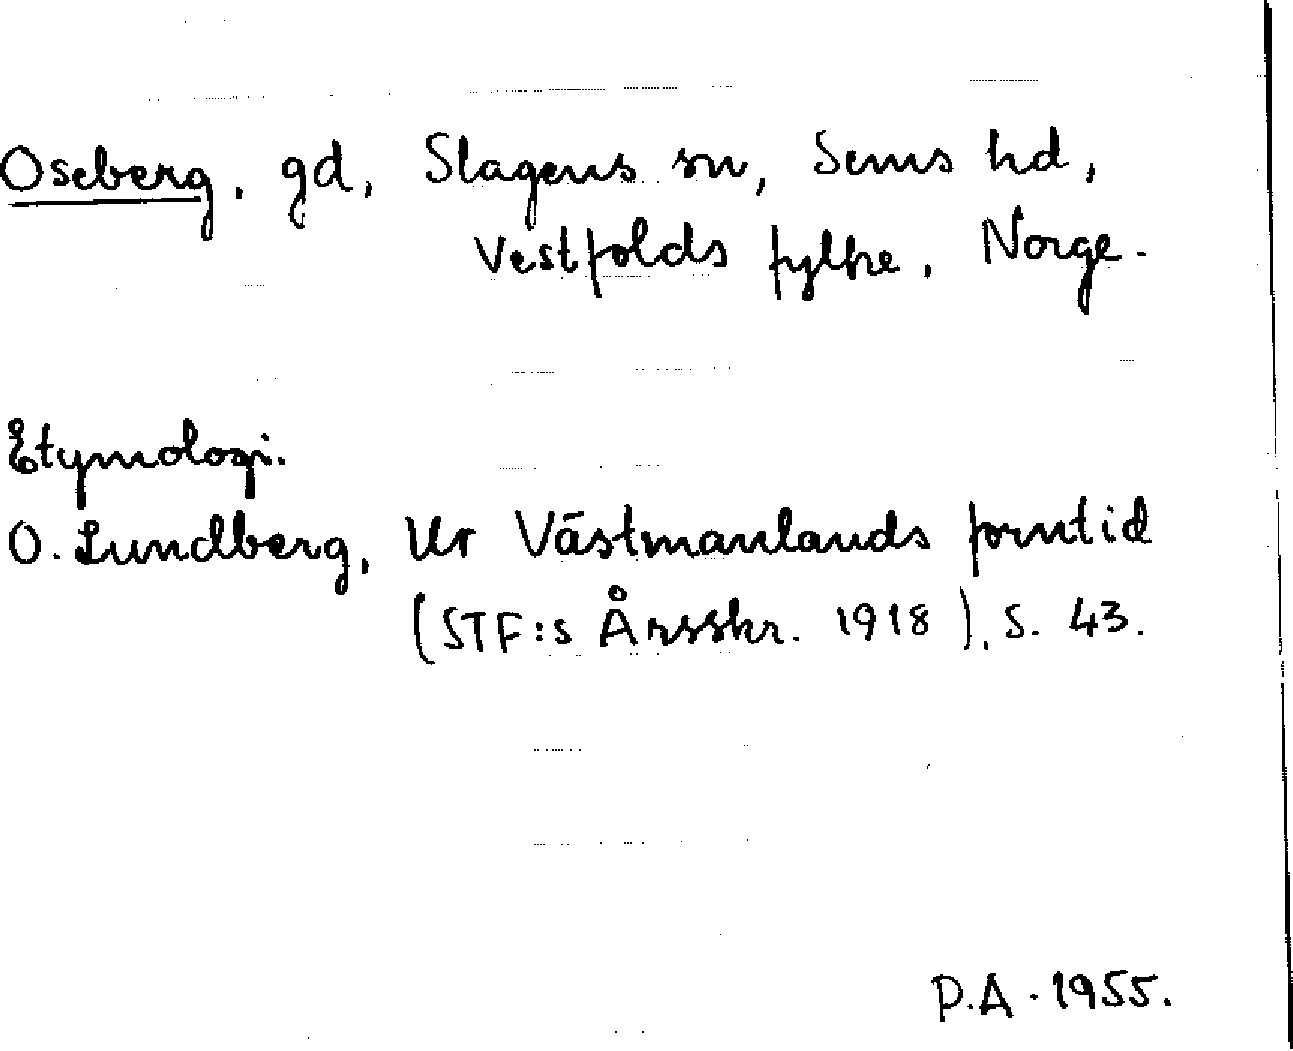 Oseberg, gd, Slagens sn, Sems hd,
Vestfolds fylke, Norge.
Etymologi.
O. Lundberg, Ur Västmanlands forntid
(STF:s Årsskr. 1918), s. 43.
P.A. 1955.